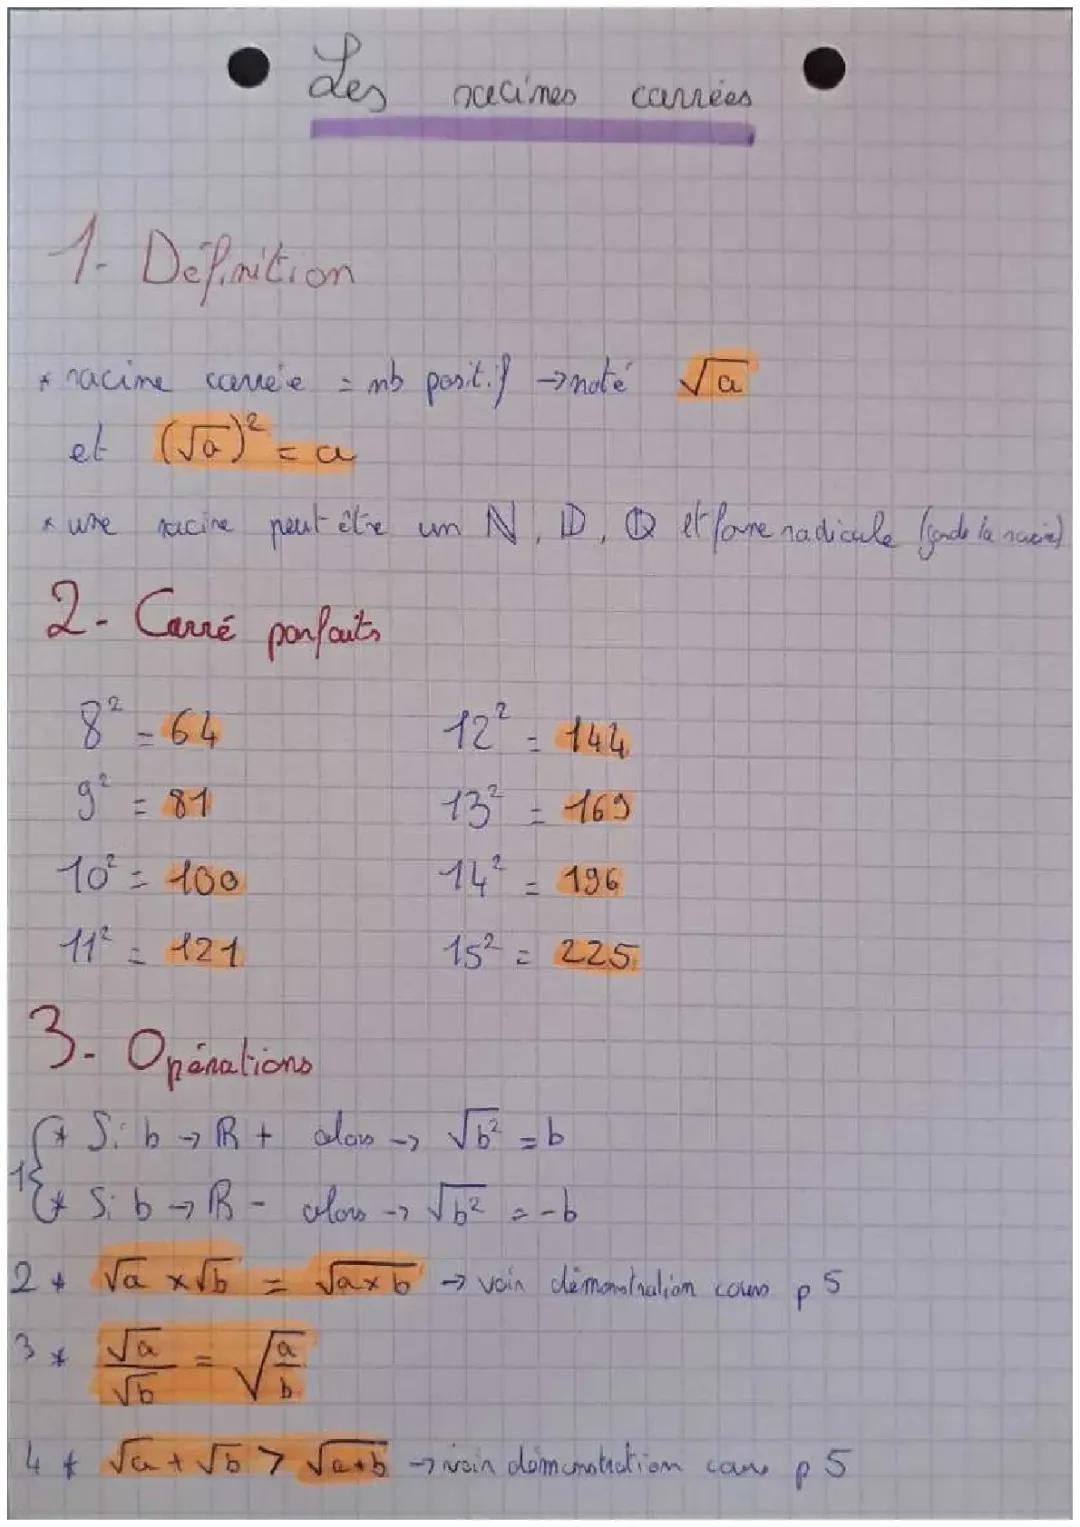 Les racines carrées
1- Définition
* racine carrée = nb positif → noté √a
et (√a)² = a
* une racine peut être un N, D, Q et forme radicule (garde la racine)
2- Carré parfaits
8² = 64
9² = 81
10² = 100
11² = 121
12² = 144
13² = 169
14² = 196
15² = 225
3- Opérations
1{ * Si b → R + alors → √b² = b
* Si b → R - alors → √b² = -b
2 * √a × √b = √a×b → voir démonstration cours p 5
3 * √a/√b = √(a/b)
4 * √a + √b > √a+b → voir démonstration cours p 5